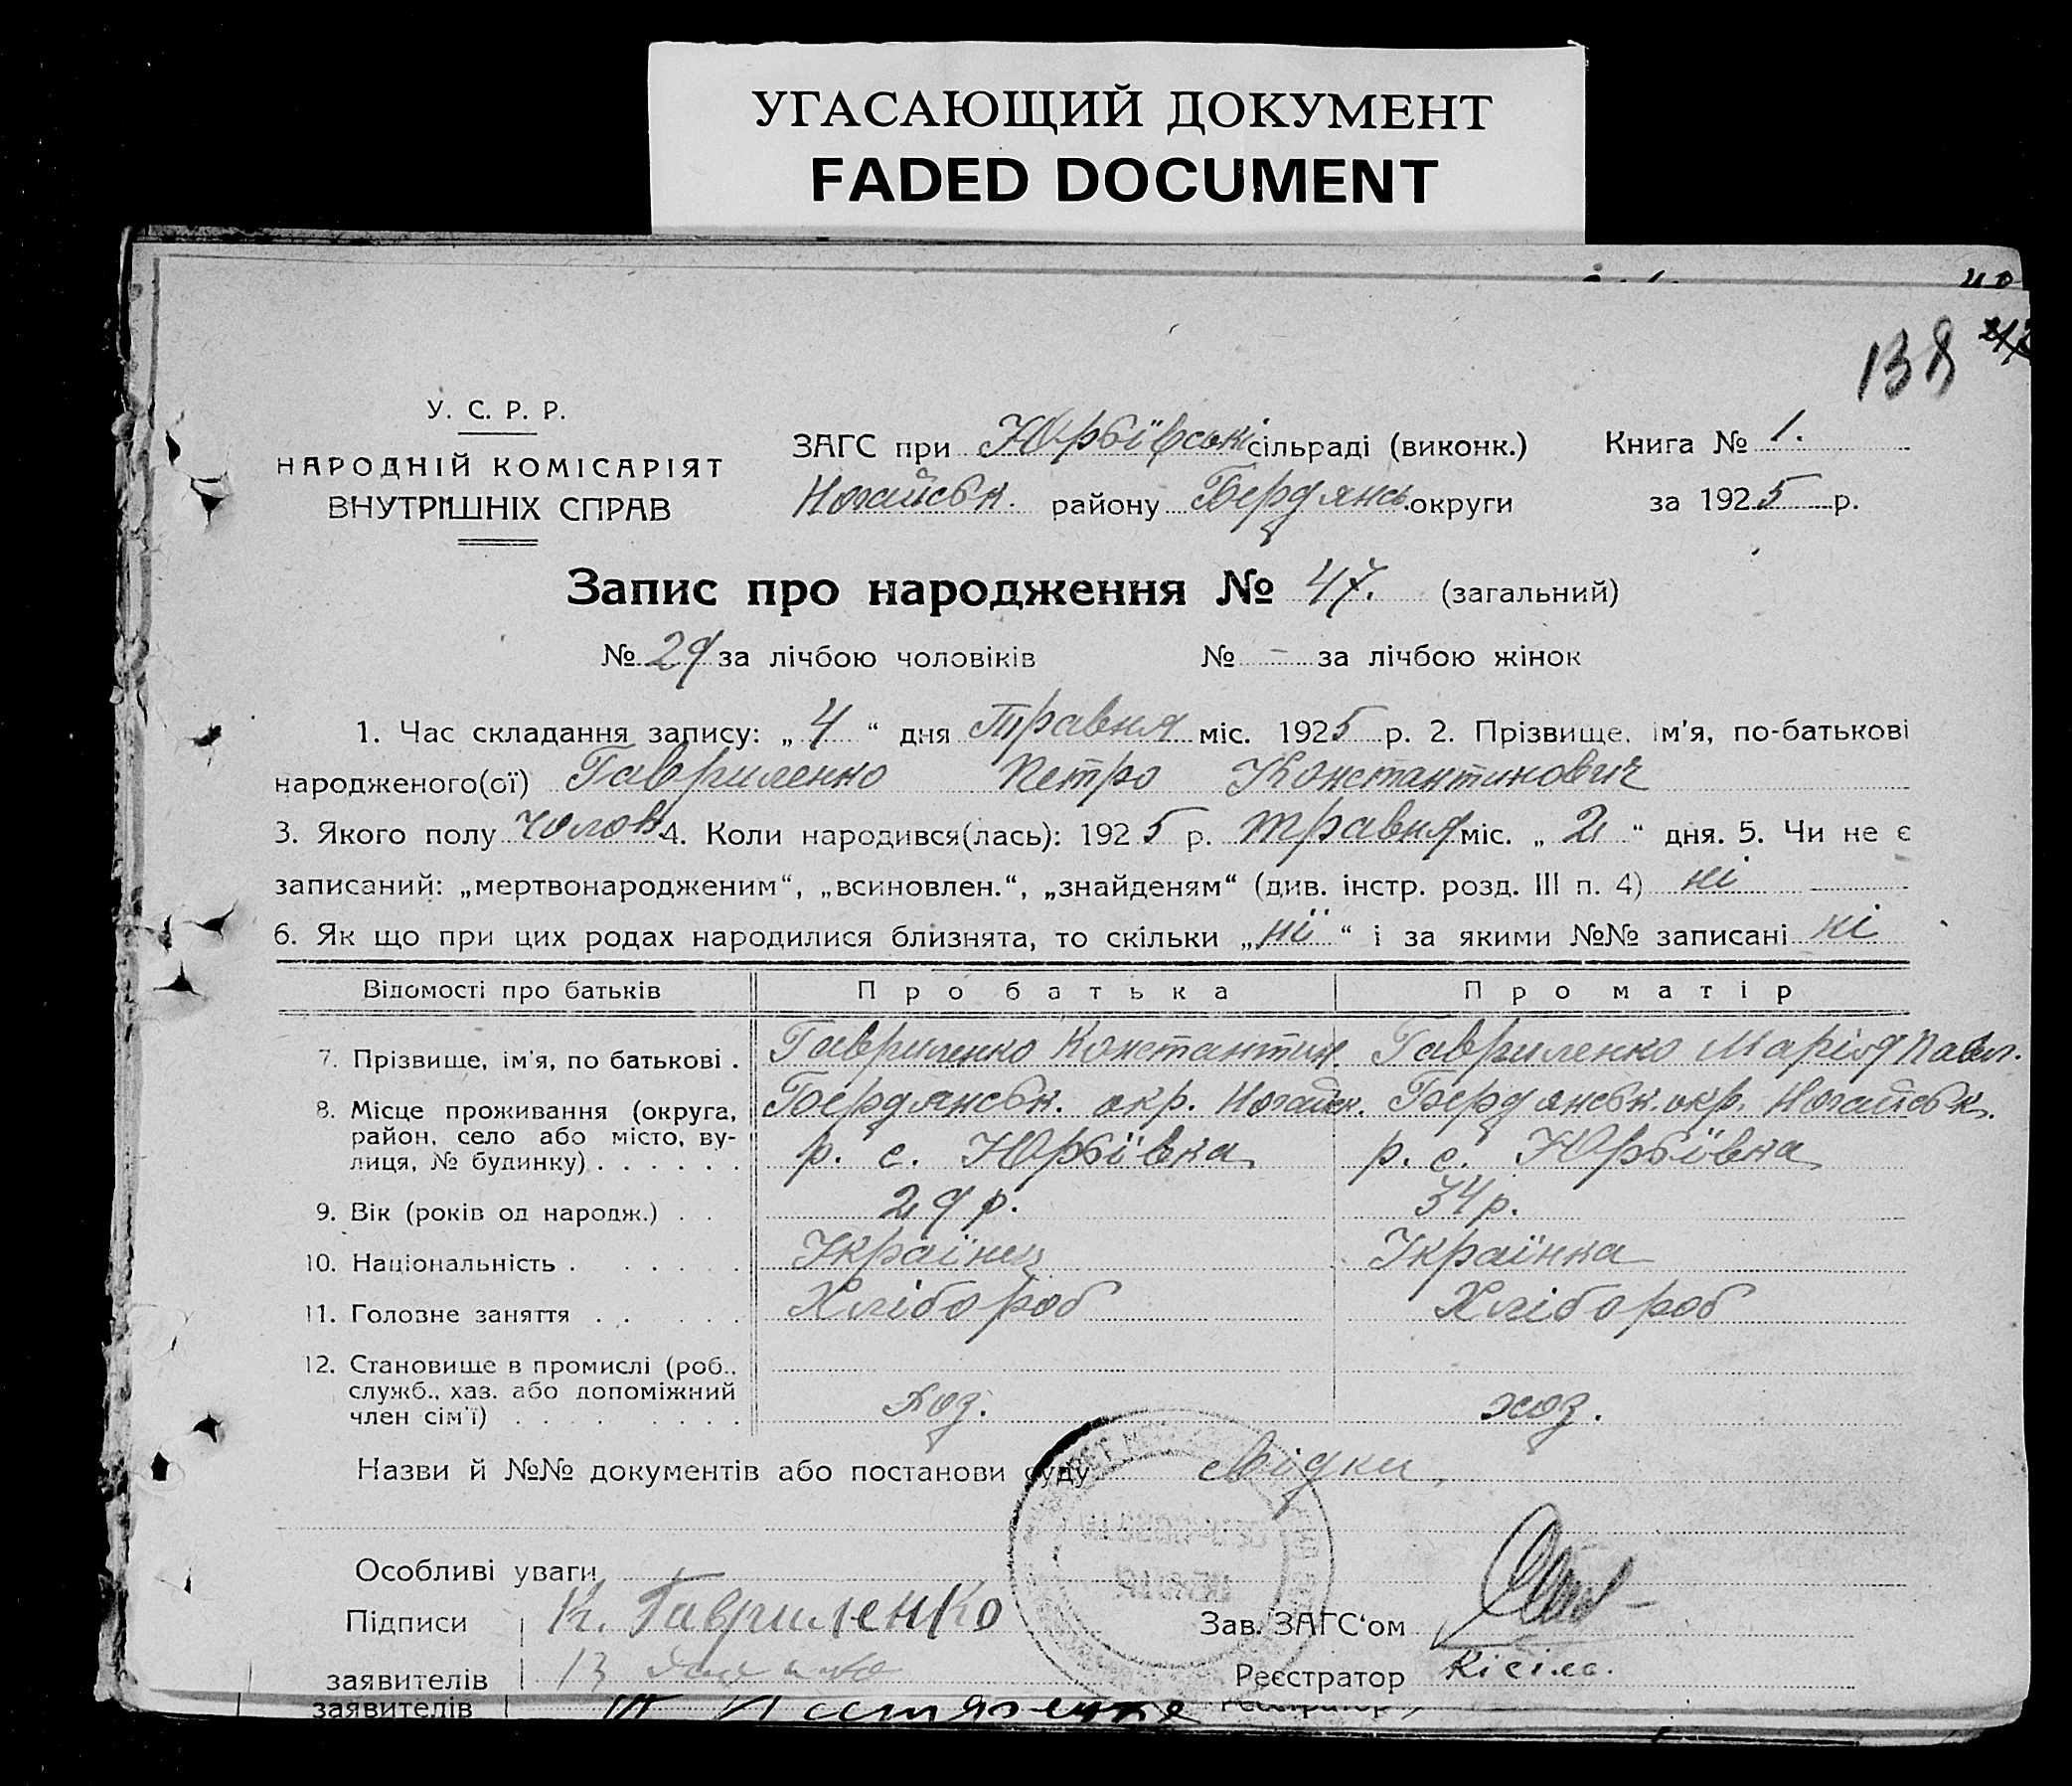 УГАСАЮЩИЙ ДОКУМЕНТ
FADED DOCUMENT
138
У. С. Р. Р.
НАРОДНІЙ КОМІСАРІЯТ
ВНУТРІШНІХ СПРАВ
ЗАГС при Юрьївськ сільраді (виконк.) Книга № 1.
Ногайськ. району Бердянсь. округи за 1925 р.
Запис про народження № 47. (загальний)
№ 29 за лічбою чоловіків № - за лічбою жінок
1. Час складання запису: „ 4 “ дня Травня міс. 1925 р. 2. Прізвище, ім'я, по-батькові
народженого(ої) Гавриленко Петро Константинович
3. Якого полу чолов. 4. Коли народився(лась): 1925 р. травня міс. „ 2 “ дня. 5. Чи не є
записаний: „мертвонародженим“, „всиновлен.“, „знайденям“ (див. інстр. розд. III п. 4) ні
6. Як що при цих родах народилися близнята, то скільки „ ні “ і за якими №№ записані ні
Відомості про батьків Про батька Про матір
7. Прізвище, ім'я, по батькові . Гавриленко Константин. Гавриленко Марія Павл.
8. Місце проживання (округа, Бердянськ. окр. Ногайск. Бердянськ. окр. Ногайськ.
район, село або місто, ву-
лиця, № будинку) . . . . . . р. с. Юрьївка р. с. Юрьївка
9. Вік (років од народж.) . . 29 р. 34 р.
10. Національність . . . . . . Українец Українка
11. Головне заняття . . . . . Хлібороб Хлібороб
12. Становище в промислі (роб..
служб., хаз. або допоміжний
член сім'ї) . . . . . . . хоз. хоз.
Назви й №№ документів або постанови суду
Особливі уваги
Підписи К. Гавриленко Зав. ЗАГС'ом
заявителів Реєстратор
заявителів